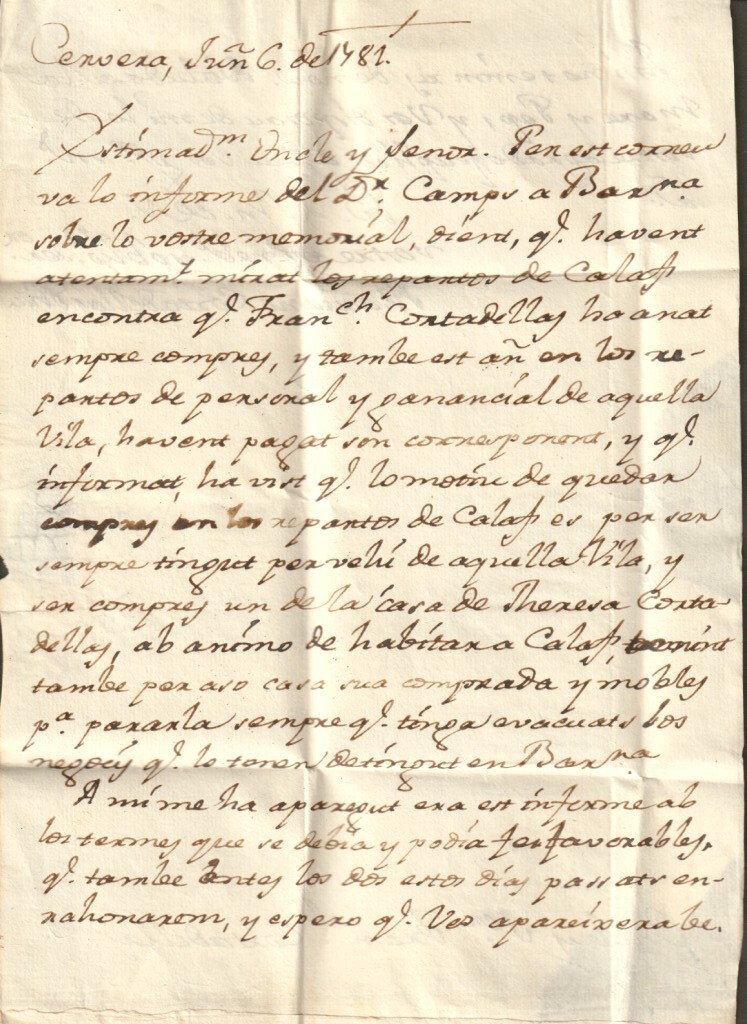 Cervera, Juñ 6. de 1781.
Estimad.m Oncle y Senor. Per est correu
va lo informe del D.r Camps a Bar.na
sobre lo vostre memorial, dient, q.e havent
atentam.t mirat los repartos de Calaf
encontra q.e Fran.ch Cortadellas ha anat
sempre compres, y tambe est añ en los re-
partos de personal y ganancial de aquella
Vila, havent pagat son corresponent, y q.e
informat, ha vist q.e lo motiu de quedar
compres en los repartos de Calaf es per ser
sempre tingut per vehi de aquella Vila, y
ser compres un de la casa de Theresa Corta-
dellas, ab animo de habitar a Calaf, tenint
tambe per aso casa sua comprada y mobles
p.a pararla sempre q.e tinga evacuats los
negocis q.e lo tenen detingut en Bar.na
A mi me ha aparegut era est informe ab
los termes que se debia y podia fer favorables,
q.e tambe antes los dos estos dias passats en-
rahonarem, y espero q.e Vos apareixera be.